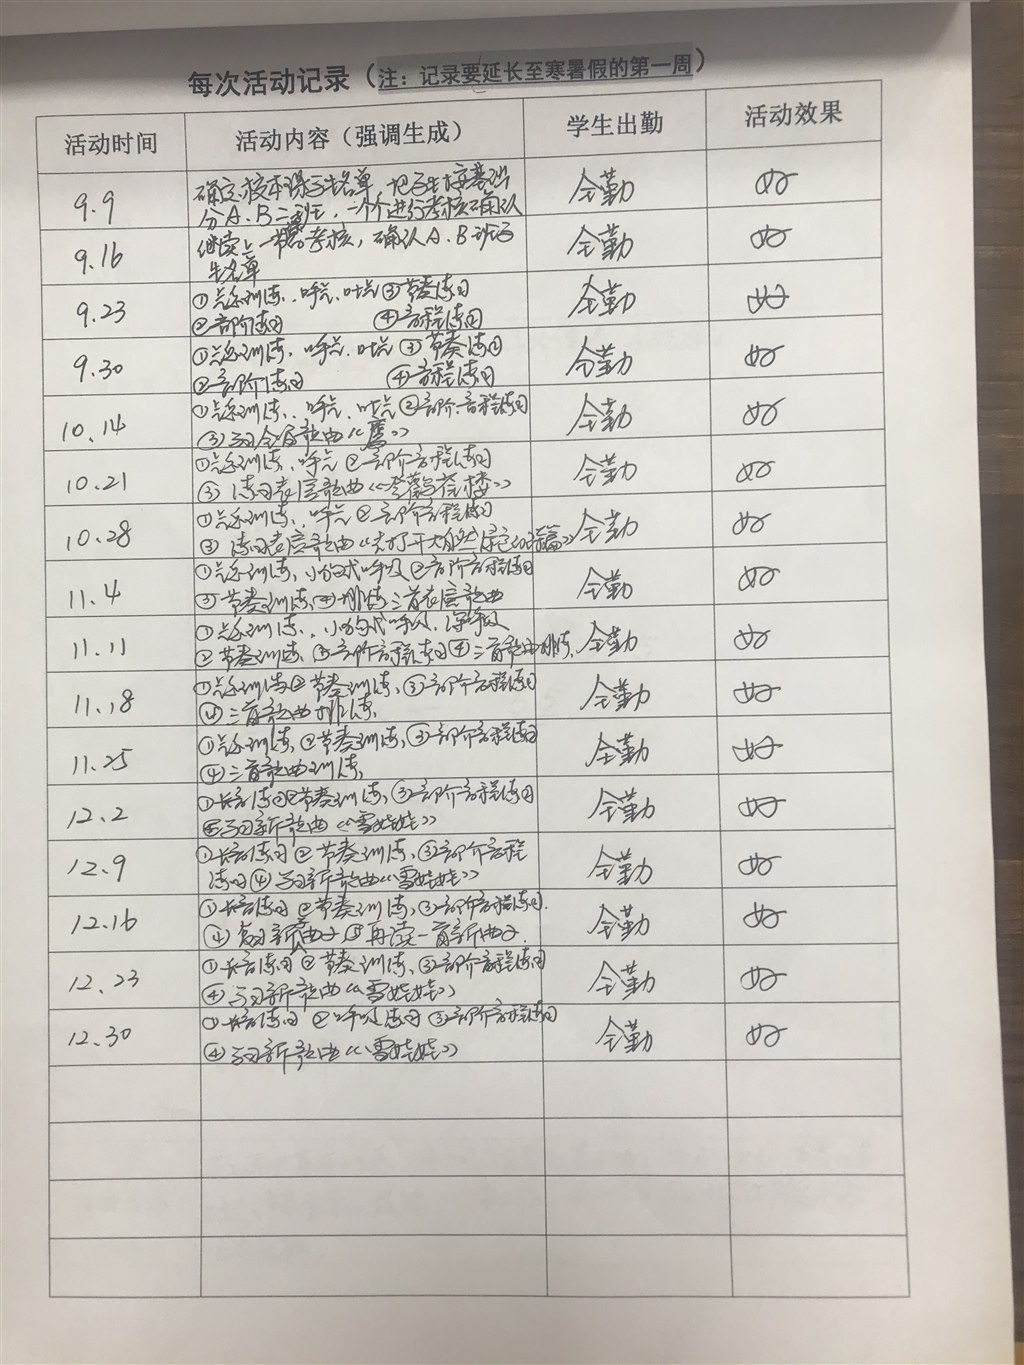 每次活动记录（注：记录要延长至寒暑假的第一周）
活动时间 活动内容（强调生成） 学生出勤 活动效果
9.9 确定校本课学生名单，把学生按基础 全勤 好
分A、B二班，一个个进行考核确认
9.16 继续上一节考核，确认A、B班学 全勤 好
生名单
9.23 ①气息训练、呼气、吐气③节奏练习 全勤 好
②音阶练习 ④音程练习
9.30 ①气息训练，呼气、吐气③节奏练习 全勤 好
②音阶练习 ④音程练习
10.14 ①气息训练、呼气、吐气②音阶、音程练习 全勤 好
③习会唱歌曲《鹰》
10.21 ①气息训练、呼气②音阶音程练习 全勤 好
③练习表演歌曲
10.28 ①气息训练、呼气②音阶音程练习 全勤 好
③练习表演歌曲《去打开大自然绿色的诗篇》
11.4 ①气息训练，小狗式呼吸②音阶音程练习 全勤 好
③节奏训练，④排练三首表演歌曲
11.11 ①气息训练、小狗式呼吸、深呼吸 全勤 好
②节奏训练，③音阶音程练习④三首歌曲排练、
11.18 ①气息训练②节奏训练，③音阶音程练习 全勤 好
④三首歌曲排练
11.25 ①气息训练，②节奏训练，③音阶音程练习 全勤 好
④三首歌曲训练
12.2 ①长音练习②节奏训练，③音阶音程练习 全勤 好
④学习新歌曲《雪娃娃》
12.9 ①长音练习②节奏训练，③音阶音程 全勤 好
练习④学习新歌曲《雪娃娃》
12.16 ①长音练习②节奏训练，③音阶音程练习. 全勤 好
④复习新曲子⑤再读一首新曲子.
12.23 ①长音练习②节奏训练，③音阶音程练习 全勤 好
④学习新歌曲《雪娃娃》
12.30 ①长音练习②呼吸练习③音阶音程练习 全勤 好
④学习新歌曲《雪娃娃》